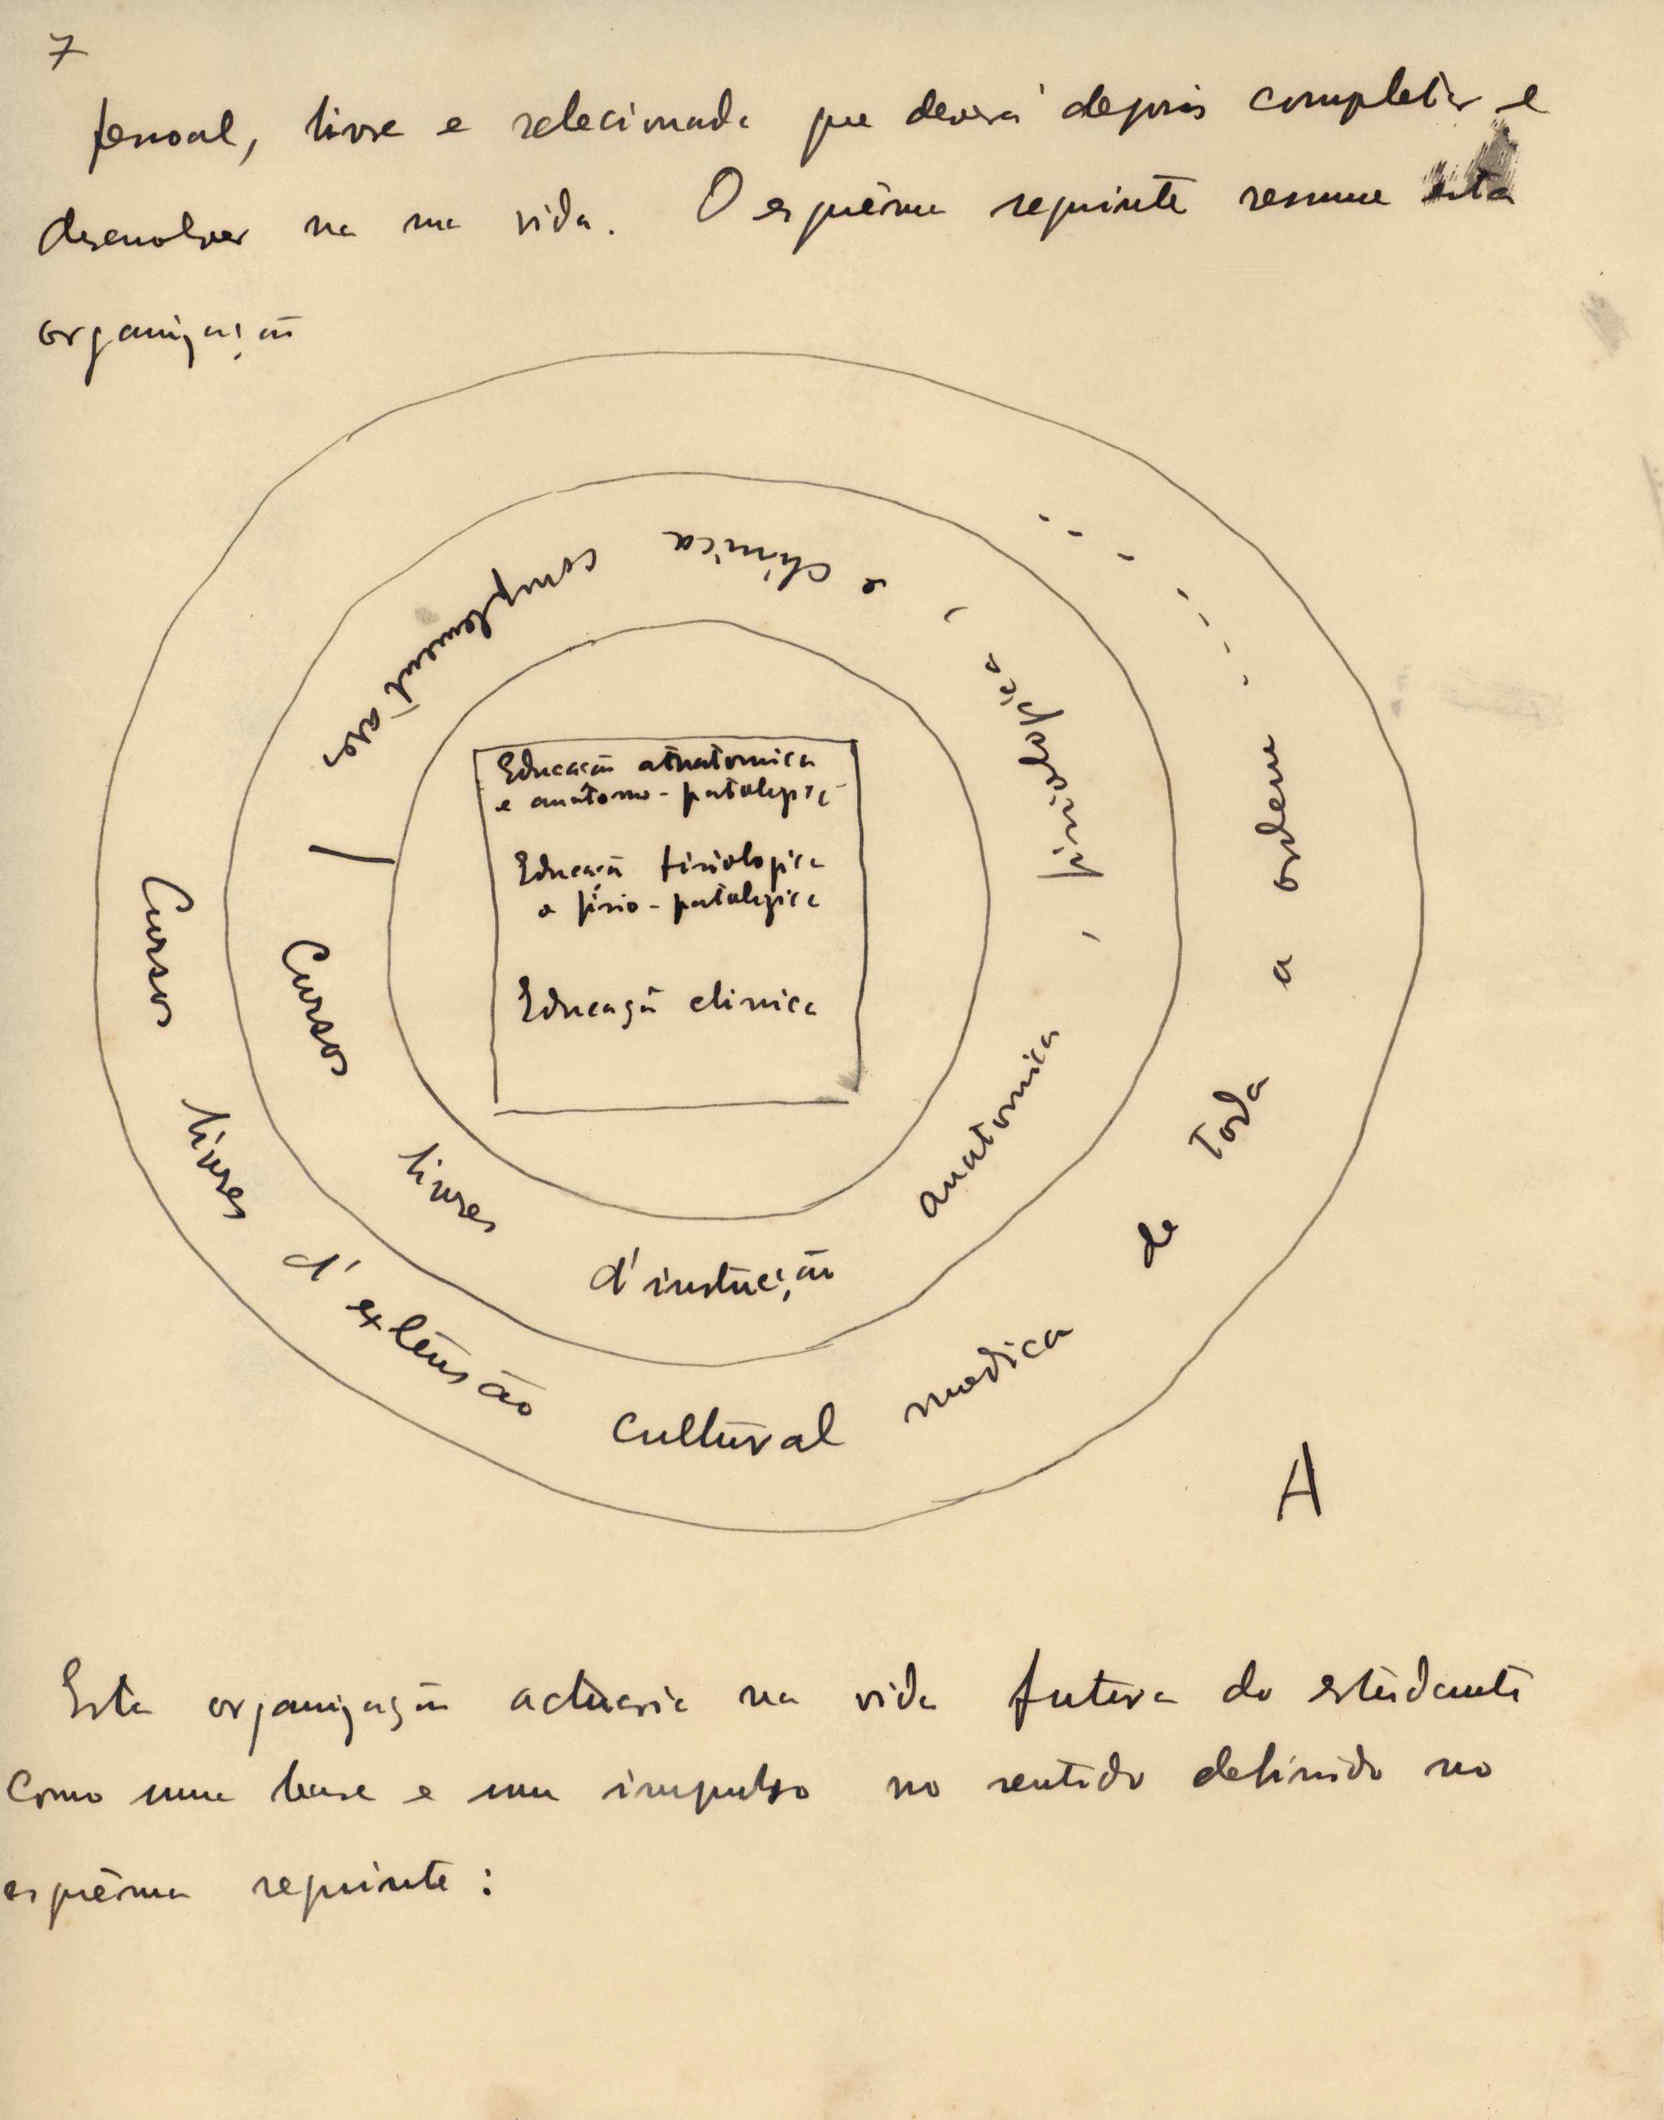 7
pessoal, livre e selecionada que deverá depois completar e
desenvolver na sua vida. O esquêma seguinte resume esta
organização
Educação anatomica
e anátomo-patologica
Educação fisiologica
e fisio-patologica
Educação clinica
Cursos livres d'instrução anatomica, fisiologica, e clinica complementares
Cursos livres d'extensão cultural medica de toda a ordem
A
Esta organização actuaria na vida futura do estudante
como uma base e um impulso no sentido definido no
esquêma seguinte: